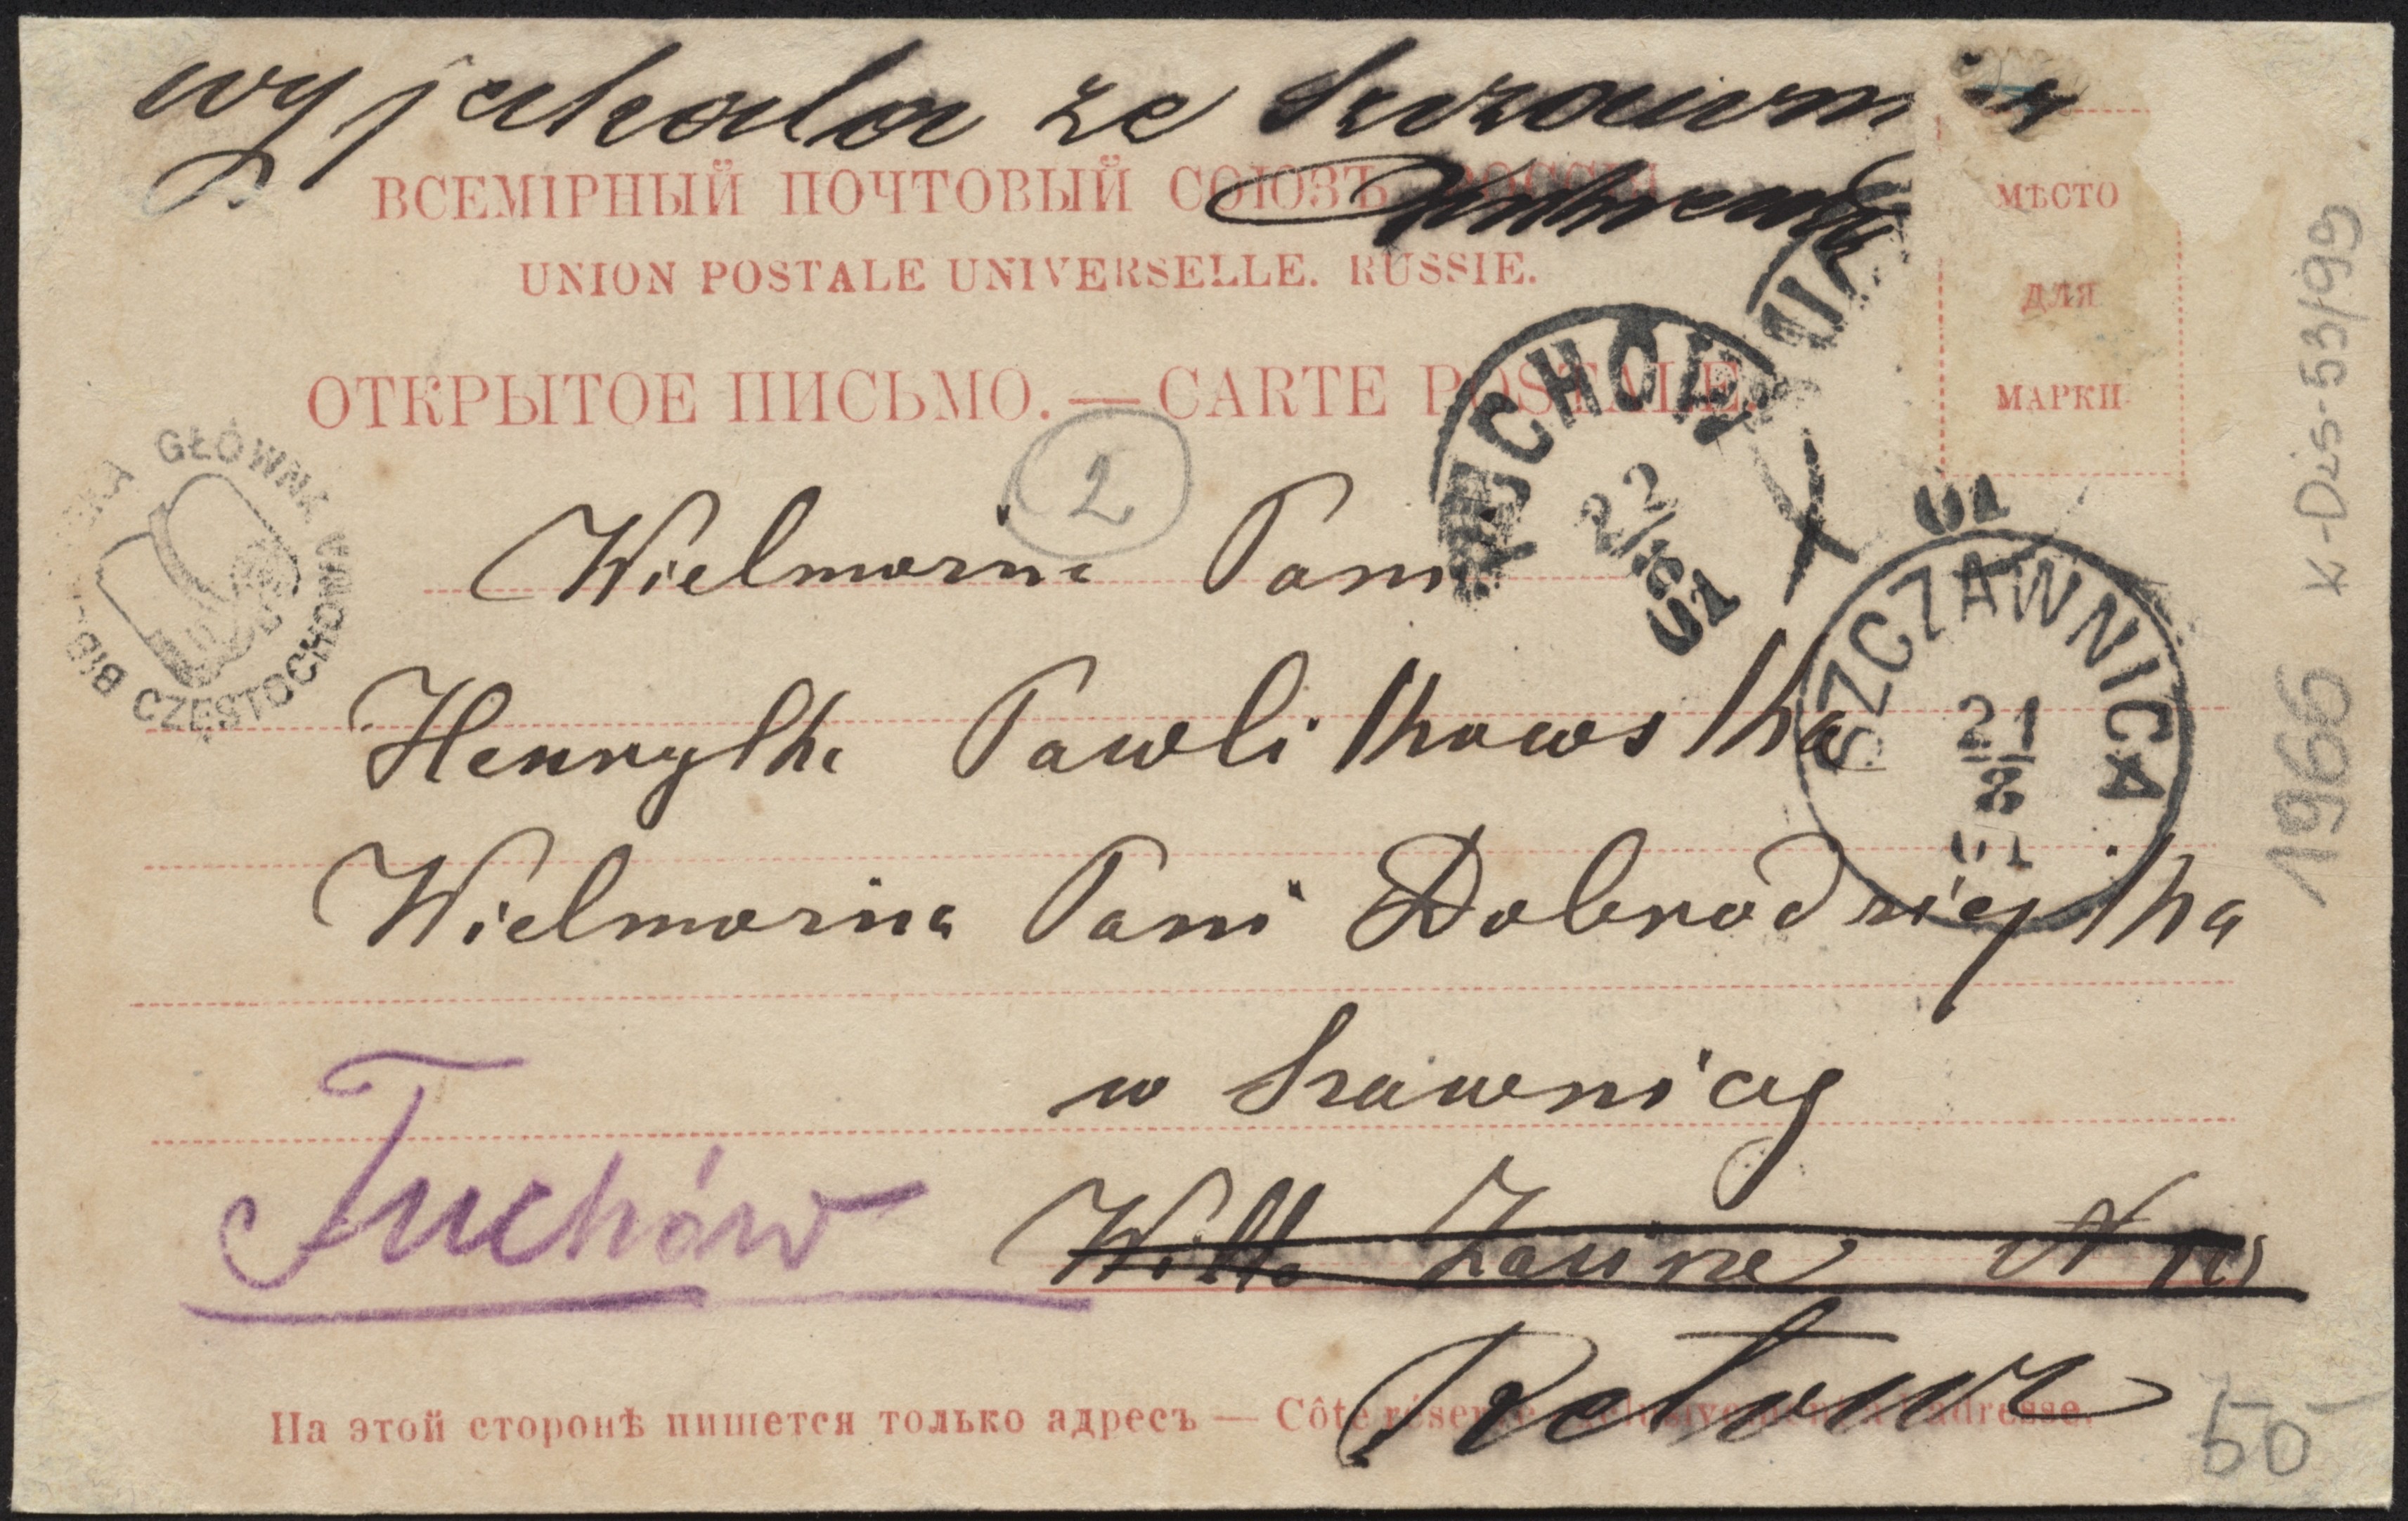 wyjechala ze
ВСЕМІРНЫЙ ПОЧТОВЫЙ СОЮЗЪ. РОССІЯ
UNION POSTALE UNIVERSELLE. RUSSIE.
ОТКРЫТОЕ ПИСЬМО. — CARTE POSTALE.
МѢСТО
ДЛЯ
МАРКИ
GŁÓWNA
CZĘSTOCHOWA
2
22/8
01
01
SZCZAWNICA
21
8
01
Wielmożna Pani
Henryka Pawlikowska
Wielmożna Pani Dobrodziejka
w Szawnicy
Tuchów
Willa N 10
Retour
На этой сторонѣ пишется только адресъ — Côté réservé exclusivement à l'adresse.
50
1966 K-Dis-53/99